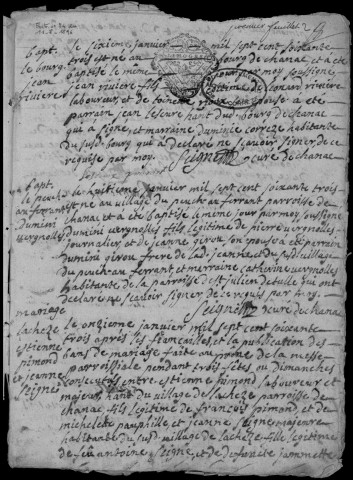 premier feuillet
bapt.
le bourg
jean
riviere
le sixieme janvier mil sept cent soixante
trois est né au bourg de chanac et a été
baptisé le meme jour par moy soussigné
jean riviere fils legitime de leonard riviere
laboureur et de toinette son epouse a eté
parrain jean lescure hant du bourg de chanac
qui a signé et marraine dumine correze habitante
du susd. bourg qui a declare ne scavoir signer de ce
requise par moy. Seignette curé de chanac
bapt.
le peuch
au ferrant
dumini
vergnolles
le huitieme janvier mil sept cent soixante trois
est né au village du peuch au ferrant parroisse de
chanac et a été baptisé le meme jour par moy soussigné
dumini vergnolles fils legitime de pierre vergnolles
journalier et de jeanne girou son epouse a eté parrain
dumini girou frere de lad. jeanne du susd. village
du peuch au ferrant et marraine catherine vergnolles
habitante de la parroisse de st julien de tulle qui ont
declaré ne scavoir signer de ce requis par moy.
Seignette curé de chanac
mariage
lacheze
estienne
pimond
et jeanne
seigne
le onzieme janvier mil sept cent soixante
trois après les fiançailles et la publication des
bans de mariage faite au prone de la messe
parroissiale pendant trois fetes ou dimanches
consecutifs entre estienne pimond laboureur et
majeur hant du village de lacheze parroisse de
chanac fils legitime de françois pimond et de
michelette pauphille et jeanne seigne majeure
habitante du susd. village de lacheze fille legitime
de feu antoine seigne et de jammette